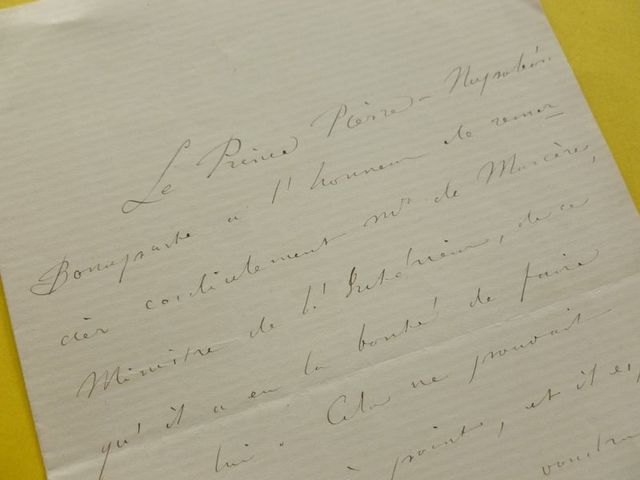 Le Prince Pierre-Napoléon
Bonaparte a l'honneur de remer
cier cordialement Mr. de Marcère,
Ministre de l'Intérieur, de ce
qu'il a eu la bonté de faire
lui. Cela ne pouvait
à point, et il es
voudra